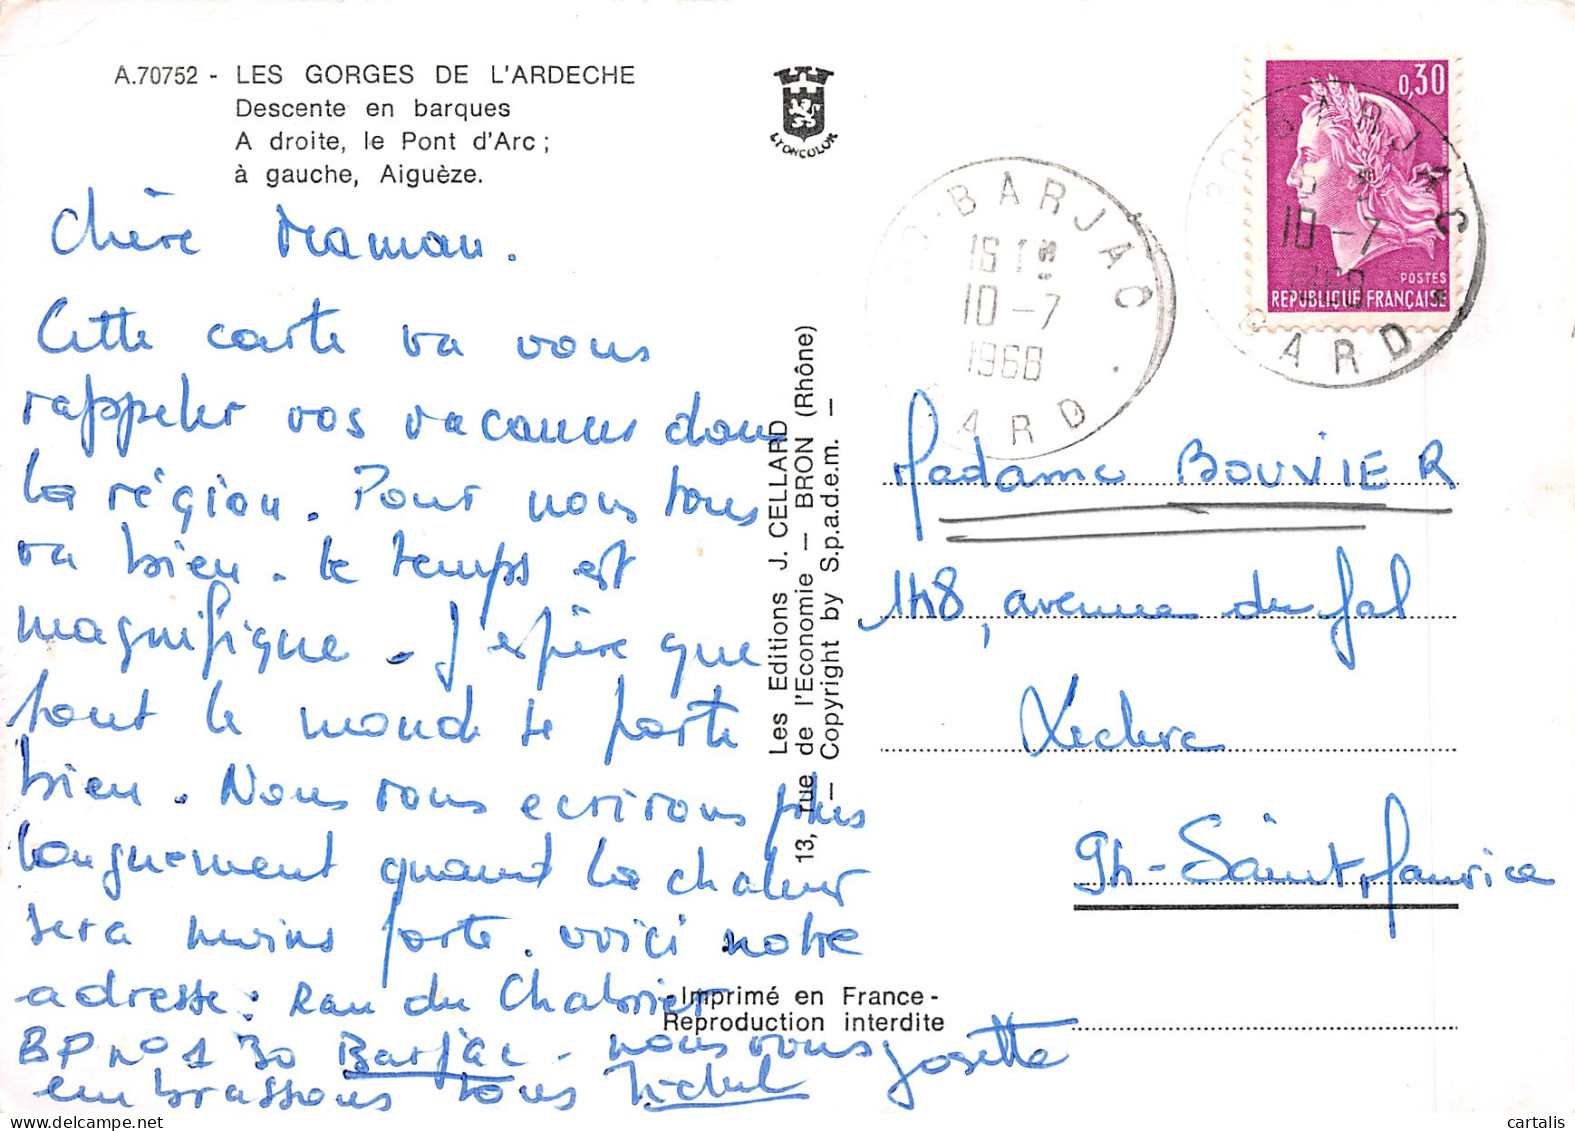 A.70752 - LES GORGES DE L'ARDECHE
Descente en barques
A droite, le Pont d'Arc ;
à gauche, Aiguèze.
LYONCOLOR
0,30
POSTES
REPUBLIQUE FRANÇAISE
30 BARJAC
10-7
GARD
BARJAC
10-7
1968
GARD
Chère Maman.
Cette carte va vous
rappeler vos vacances dans
la région. Pour nous tous
va bien. Le temps est
magnifique. J'espère que
tout le monde se porte
bien. Nous vous ecrirons plus
longuement quand la chaleur
sera moins forte. voici notre
adresse : Ran du Chabrier
BP n° 1 30 Barjac - nous vous
embrassons tous Michel Josette
Les Editions J. CELLARD
13, rue de l'Economie — BRON (Rhône)
— Copyright by S.p.a.d.e.m. —
Madame BOUVIER
148, avenue du Gal
Leclerc
94-Saint Maurice
-Imprimé en France-
Reproduction interdite
cartalis